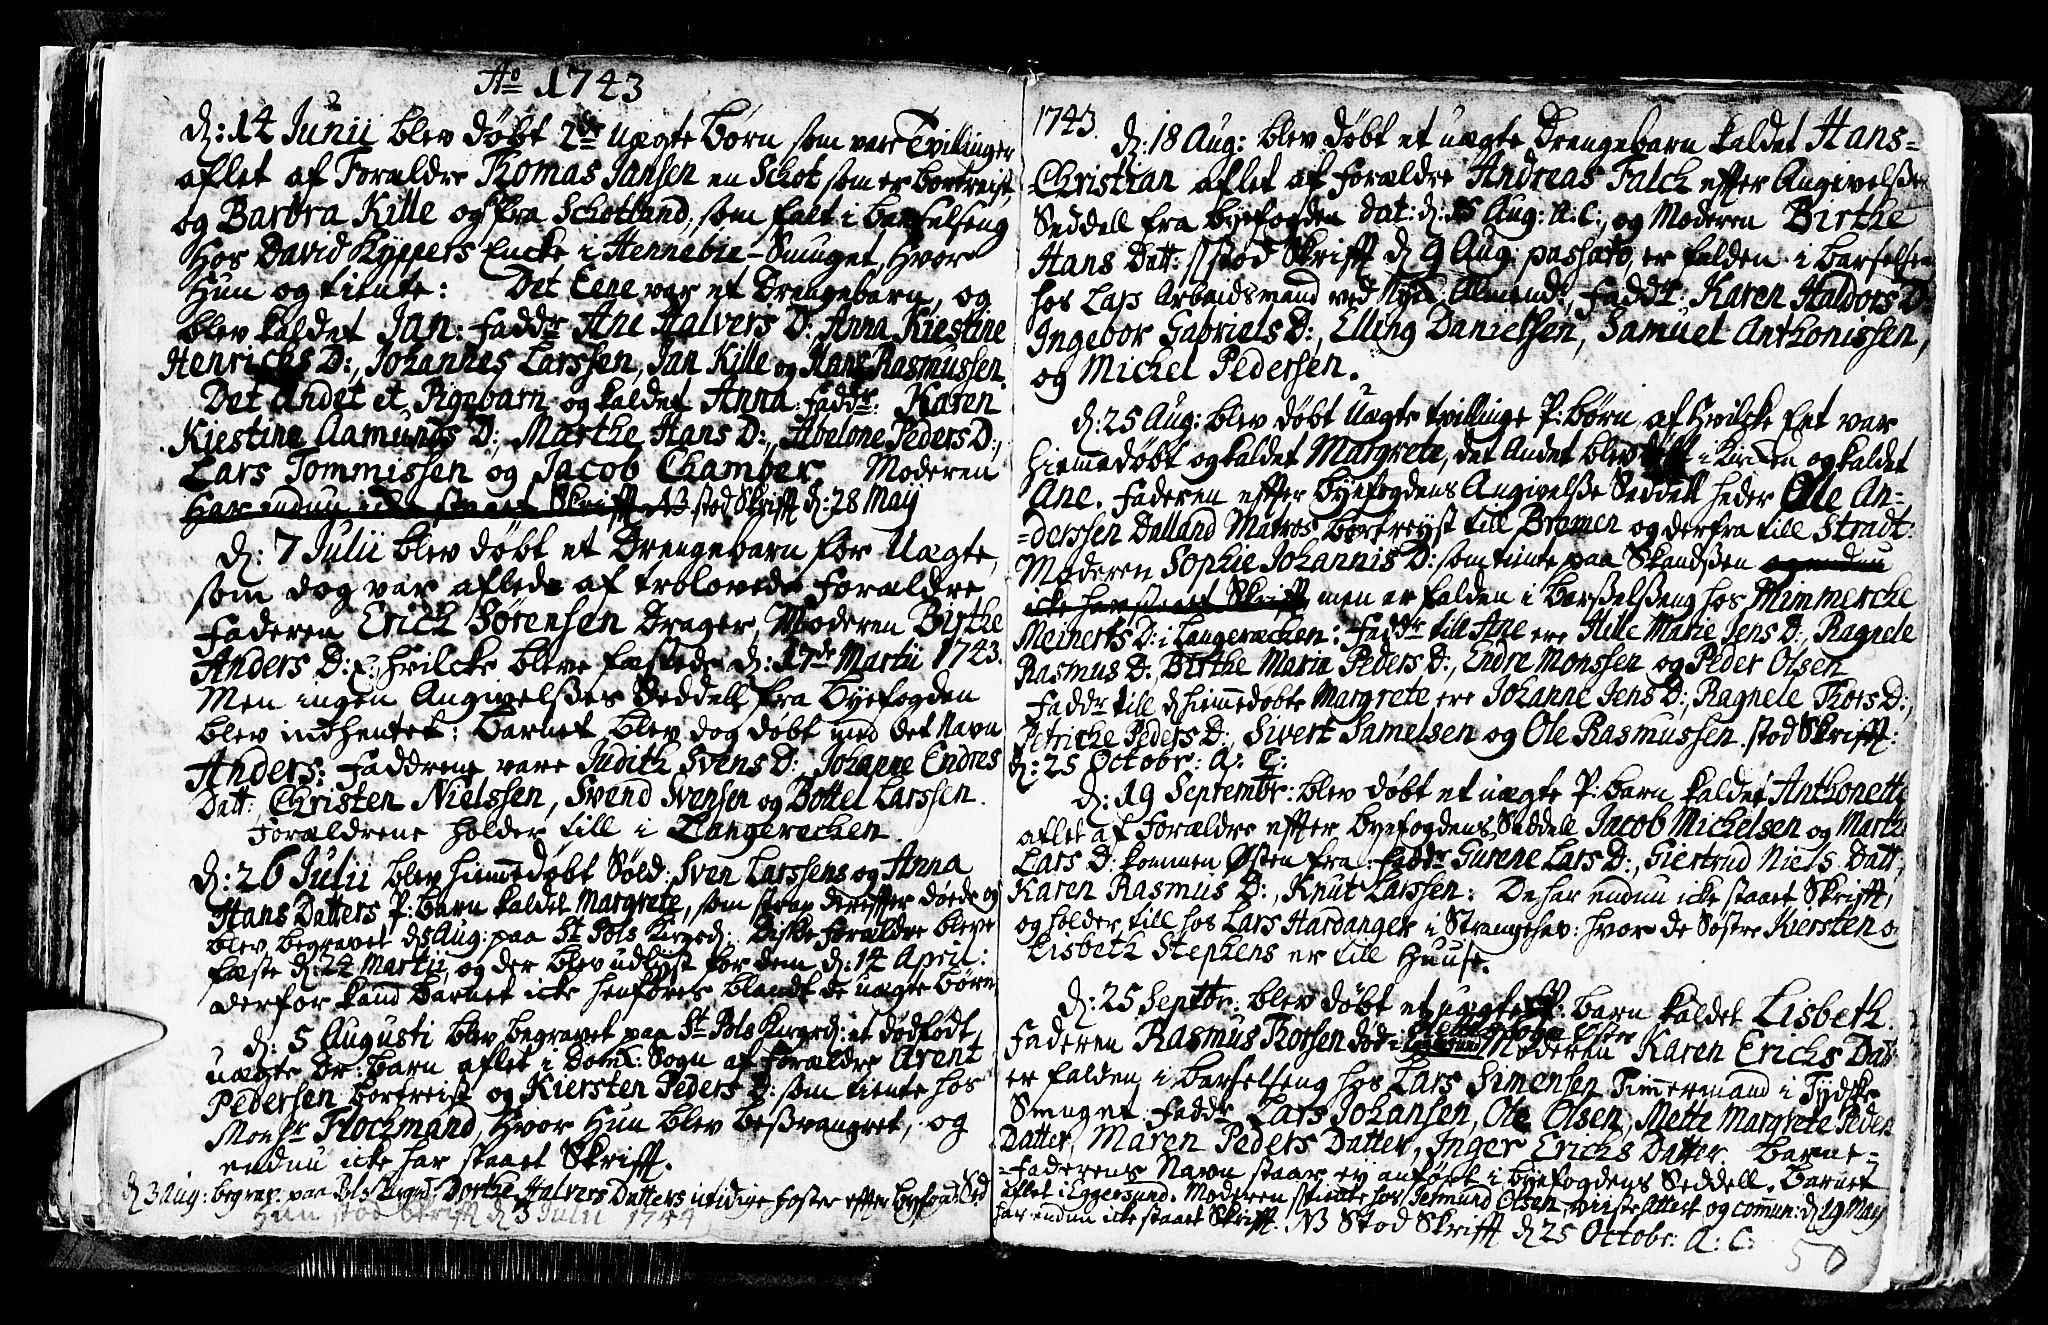 Aō 1743
d: 14 Junii blev døbt 2de uægte børn som vare Tvillinger
aflet af Forældre Thomas Jansen en Schot, som er bortreist,
og Barbra Kille og fra Schotland, som falt i barselseng
Hos David Kyppers Encke i Hennebie-Smuget, hvor
Hun og tiente: Det Eene var et Drengebarn, og
blev kaldet Jan: Faddr Ane Halvers D:, Anna Kiestine
Henrichs D:, Johannes Larssen, Jan Kille og Hans Rasmussen.
Det Andet et Pigebarn og kaldet Anna: Faddr: Karen
Kiestine Aamunds D:, Marthe Hans D:, Abelone Peders D:,
Lars Tommissen og Jacob Chamber. Moderen
har endnu icke staaet Skrifft NB stod Skrifft d: 28 May
d: 7 Julii blev døbt et Drengebarn for Uægte,
som dog var afled af trolovede Forældre
Faderen Erich Sørensen Drager, Moderen Birthe
Anders D: hvilcke bleve fæstede d: 17de Martii 1743.
Men ingen Angivelses Seddell fra Byefogden
blev indhentet: Barnet blev dog døbt med det Navn
Anders: Faddrene vare Judith Svens D:, Johanne Endres
Datt:, Christen Nielssen, Svend Svensen og Bottel Larssen.
Forældrene holder till i Langeræcken
d: 26 Julii blev hiemedøbt Sold: Sven Larssens og Anna
Hans Datters P: barn kaldet Margrete, som strax dereffter døde og
blev begravet d 5 Aug: paa St Pols Kirgrd: Disse Forældre bleve
fæste d: 24 Martii, og der blev udlyst for dem d: 14 April:
derfor kand barnet icke henføres blandt de uægte børn
d: 5 Augusti blev begravet paa St Pols Kirgrd: et dødfødt
uægte Dr: barn aflet i Domk: Sogn af Forældre Arent
Pedersen bortreist og Kiersten Peders D: som tiente hos
Monsr Flochmand, hvor Hun blev besvangret, og
endnu icke har staaet Skrifft.
d 3 Aug: begrav: paa Pols Kirgrd: Dorthe Halvers Datters utidige foster effter byfogd: Sed
Hun stod Skrifft d 3 Julii 1744
1743.
d: 18 Aug: blev døbt et uægte Drengebarn kaldet Hans-
-Christian aflet af Forældre Andreas Falch effter Angivelses
Seddell fra Byefogden dat: d: 15 Aug: a: c:, og Moderen Birthe
Hans Datt: stod Skrifft d 9 Aug: passato, er falden i barselseng
hos Lars Arbeidsmand ved Nye Almend:, Faddr: Karen Haldors D:
Ingebor Gabriels D:, Elling Danielsen, Samuel Anthonissen,
og Michel Pedersen.
d: 25 Aug: blev døbt Uægte tvillinge P: børn, af hvilcke Eet var
hiemedøbt og kaldet Margrete, det Andet blev døbt i Kircken og kaldet
Ane. Faderen effter Byefogdens Angivelse Seddell heder Ole An-
-derssen Dalland Matros, bortreyst till Bremen og derfra till Stradt:
Moderen Sophie Johannis D: som tiente paa Skandsen og endnu
icke har staaet Skrifft men er falden i barselseng hos Mimmerche
Meinerts D: i Langeræcken: Faddr till Ane ere Hille Marie Jens D:, Ragnele
Rasmus D:, Birthe Maria Peders D:, Endre Monssen og Peder Olsen
Faddr till d hiemedøbte Margrete ere Johanne Jens D:, Ragnele Thors D:,
Petriche Peders D:, Sivert Samelsen og Ole Rasmussen. stod Skrifft:
d: 25 Octobr: a: c:
d: 19 Septembr: blev døbt et uægte P: barn kaldet Anthonette
aflet af Forældre effter byefogdens Seddell Jacob Michelsen og Marthe
Lars D: kommen Østen fra: Faddr Gurene Lars D:, Giertrud Niels Datt:
Karen Rasmus D:, Knut Larssen: De har endnu icke staaet Skrifft,
og holder till hos Lars Hardanger i Strangehav: hvor de Søstre Kiersten o
Lisbeth Stephens er till Huuse.
d: 25 Septbr: blev døbt et uægte P: barn kaldet Lisbeth
Faderen Rasmus Thorsen død i Moderen Karen Erichs Datt
er falden i barselseng hos Lars Simensen Timermand i Tydske
Smuget: Faddr Lars Johansen, Ole Olsen, Mette Margrete Peders
Datter, Maren Peders Datter, Inger Erichs Datter. Barne-
-Faderens Navn staar ey anført i byefogdens Seddell. Barnet
aflet i Eggersund. Moderen tiente hos Jetmund Olsen, viiste Attest og commun: d 19 May
har endnu icke staaet Skrifft. NB Stod Skrifft d 25 Octobr: a: c:
50